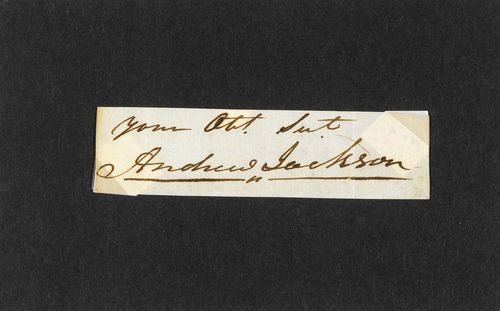 Your Obt. Svt.
Andrew Jackson